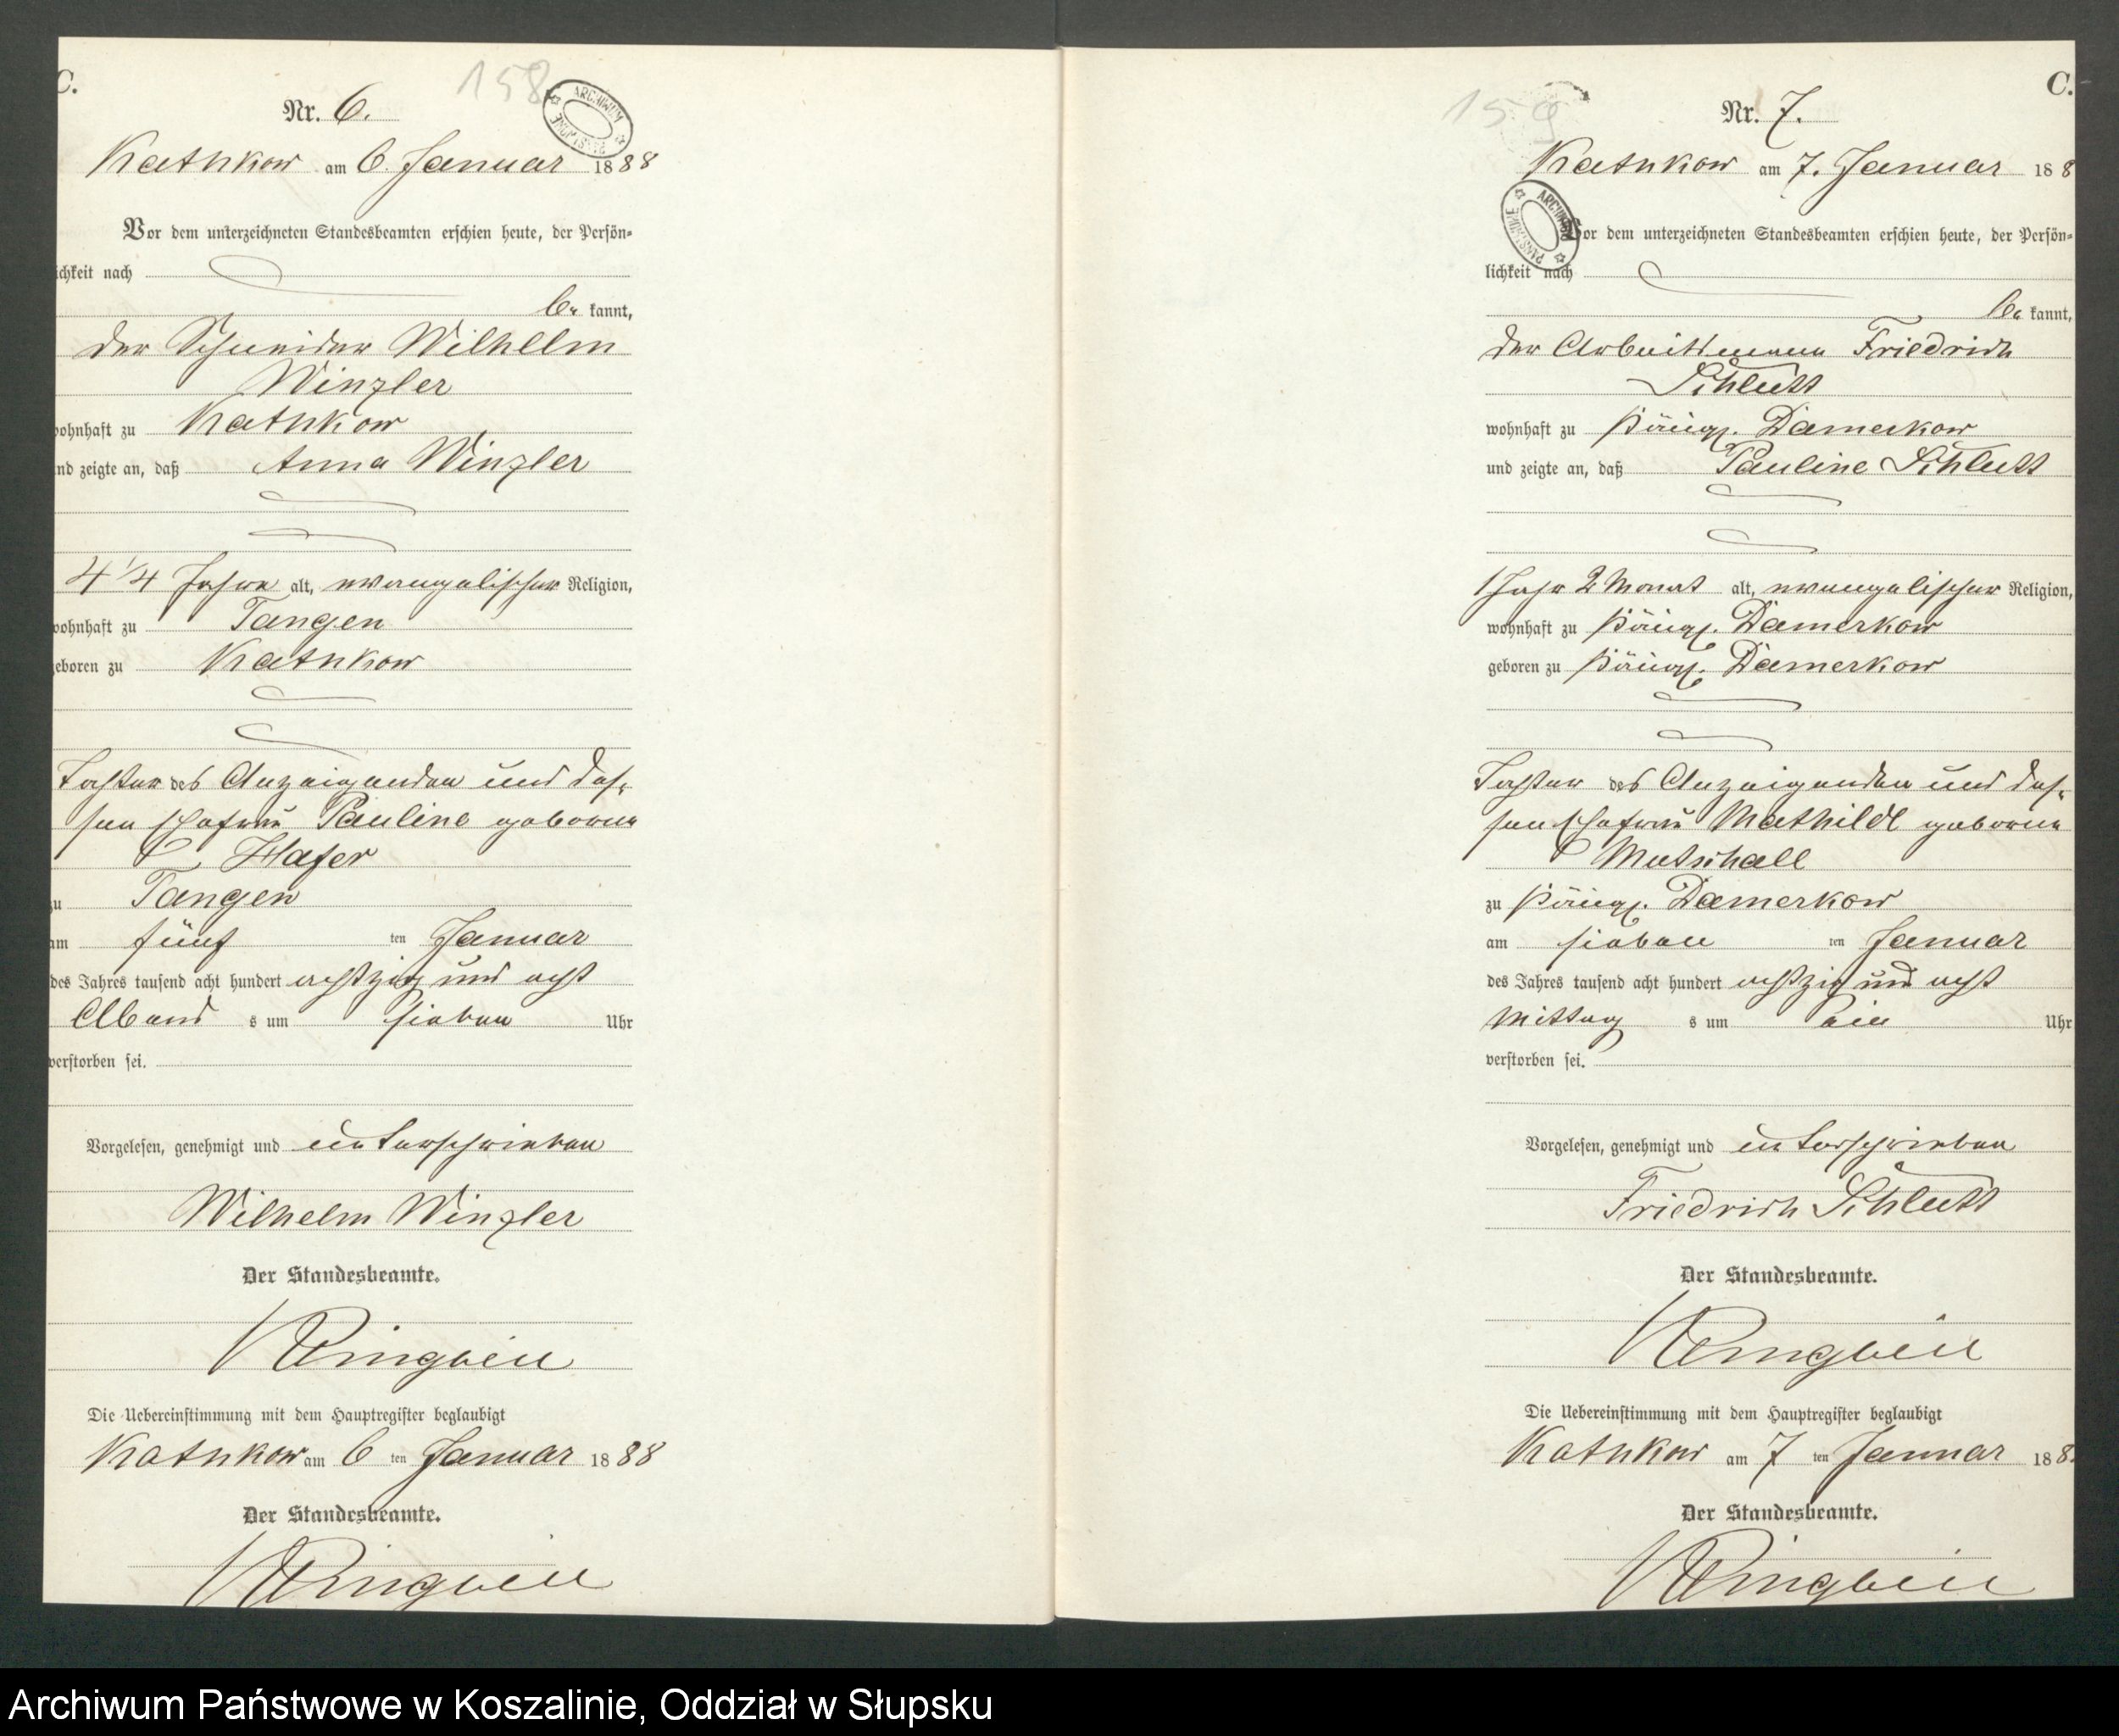 C.
158
Nr. 6.
ARCHIWUM PAŃSTWOWE
Kathkow am 6. Januar 1888
Vor dem unterzeichneten Standesbeamten erschien heute, der Persön-
ichkeit nach
be kannt,
der Schneider Wilhelm
Winzler
wohnhaft zu Kathkow
nd zeigte an, daß Anna Winzler
4 1/4 Jahre alt, evangelischer Religion,
wohnhaft zu Tangen
geboren zu Kathkow
Tochter des Anzeigenden und des-
sen Ehefrau Pauline geborene
Hafer
zu Tangen
am fünf ten Januar
des Jahres tausend acht hundert achtzig und acht
Abend s um sieben Uhr
verstorben sei.
Vorgelesen, genehmigt und unterschrieben
Wilhelm Winzler
Der Standesbeamte.
Die Uebereinstimmung mit dem Hauptregister beglaubigt
Kathkow am 6 ten Januar 1888
Der Standesbeamte.
C.
159
Nr. 7.
Kathkow am 7. Januar 188
ARCHIWUM PAŃSTWOWE
Vor dem unterzeichneten Standesbeamten erschien heute, der Persön-
lichkeit nach
be kannt,
der Arbeitsmann Friedrich
Schlutt
wohnhaft zu Königl. Damerkow
und zeigte an, daß Pauline Schlutt
1 Jahr 2 Monat alt, evangelischer Religion,
wohnhaft zu Königl. Damerkow
geboren zu Königl. Damerkow
Tochter des Anzeigenden und des-
sen Ehefrau Mathilde geborene
Mutschall
zu Königl. Damerkow
am sieben ten Januar
des Jahres tausend acht hundert achtzig und acht
Mittag s um ein Uhr
verstorben sei.
Vorgelesen, genehmigt und unterschrieben
Friedrich Schlutt
Der Standesbeamte.
Die Uebereinstimmung mit dem Hauptregister beglaubigt
Kathkow am 7 ten Januar 188
Der Standesbeamte.
Archiwum Państwowe w Koszalinie, Oddział w Słupsku